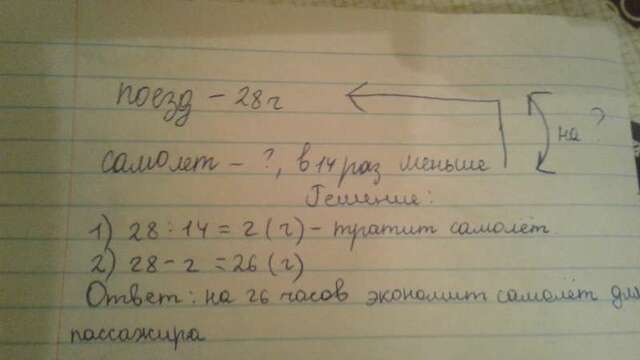 поезд – 28 ч
самолет – ?, в 14 раз меньше
на ?
Решение:
1) 28 : 14 = 2 (ч) – тратит самолёт.
2) 28 – 2 = 26 (ч)
Ответ: на 26 часов экономит самолёт для
пассажира